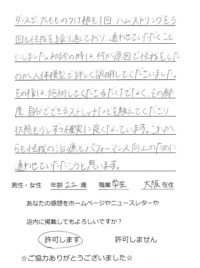 ダンスで、太ももの付け根を1回、ハムストリングを3
回も怪我を繰り返しており、通わせていただくこと
にしました。初診の時は、何が原因で怪我をした
のか人体模型で詳しく説明してくださいました。
その後は施術してくださるだけでなく、その都
度、自分でできるストレッチなどを教えてくださり
状態も少しずつ確実に良くなっています。これか
らも怪我の治療とパフォーマンス向上のために
通わせていただこうと思います。
男性・女性 年齢 22 歳 職業 学生 大阪 在住
あなたの感想をホームページやニュースレターや
店内に掲載してもよろしいですか?
許可します 許可しません
☆ご協力ありがとうございました☆